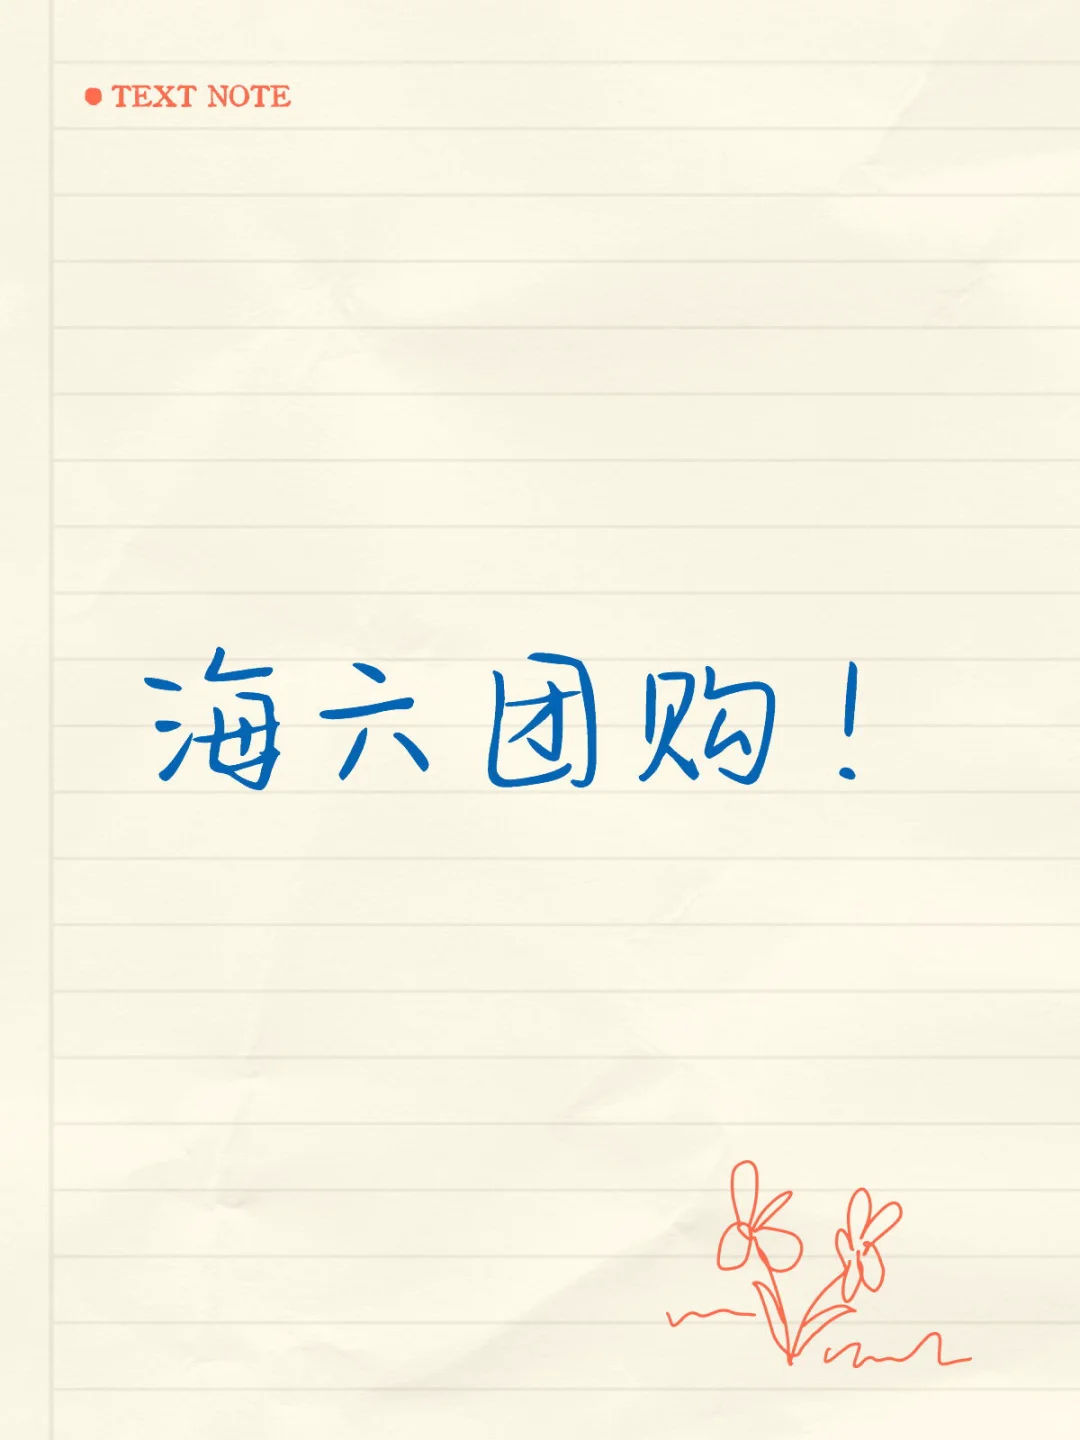 TEXT NOTE
海六团购！